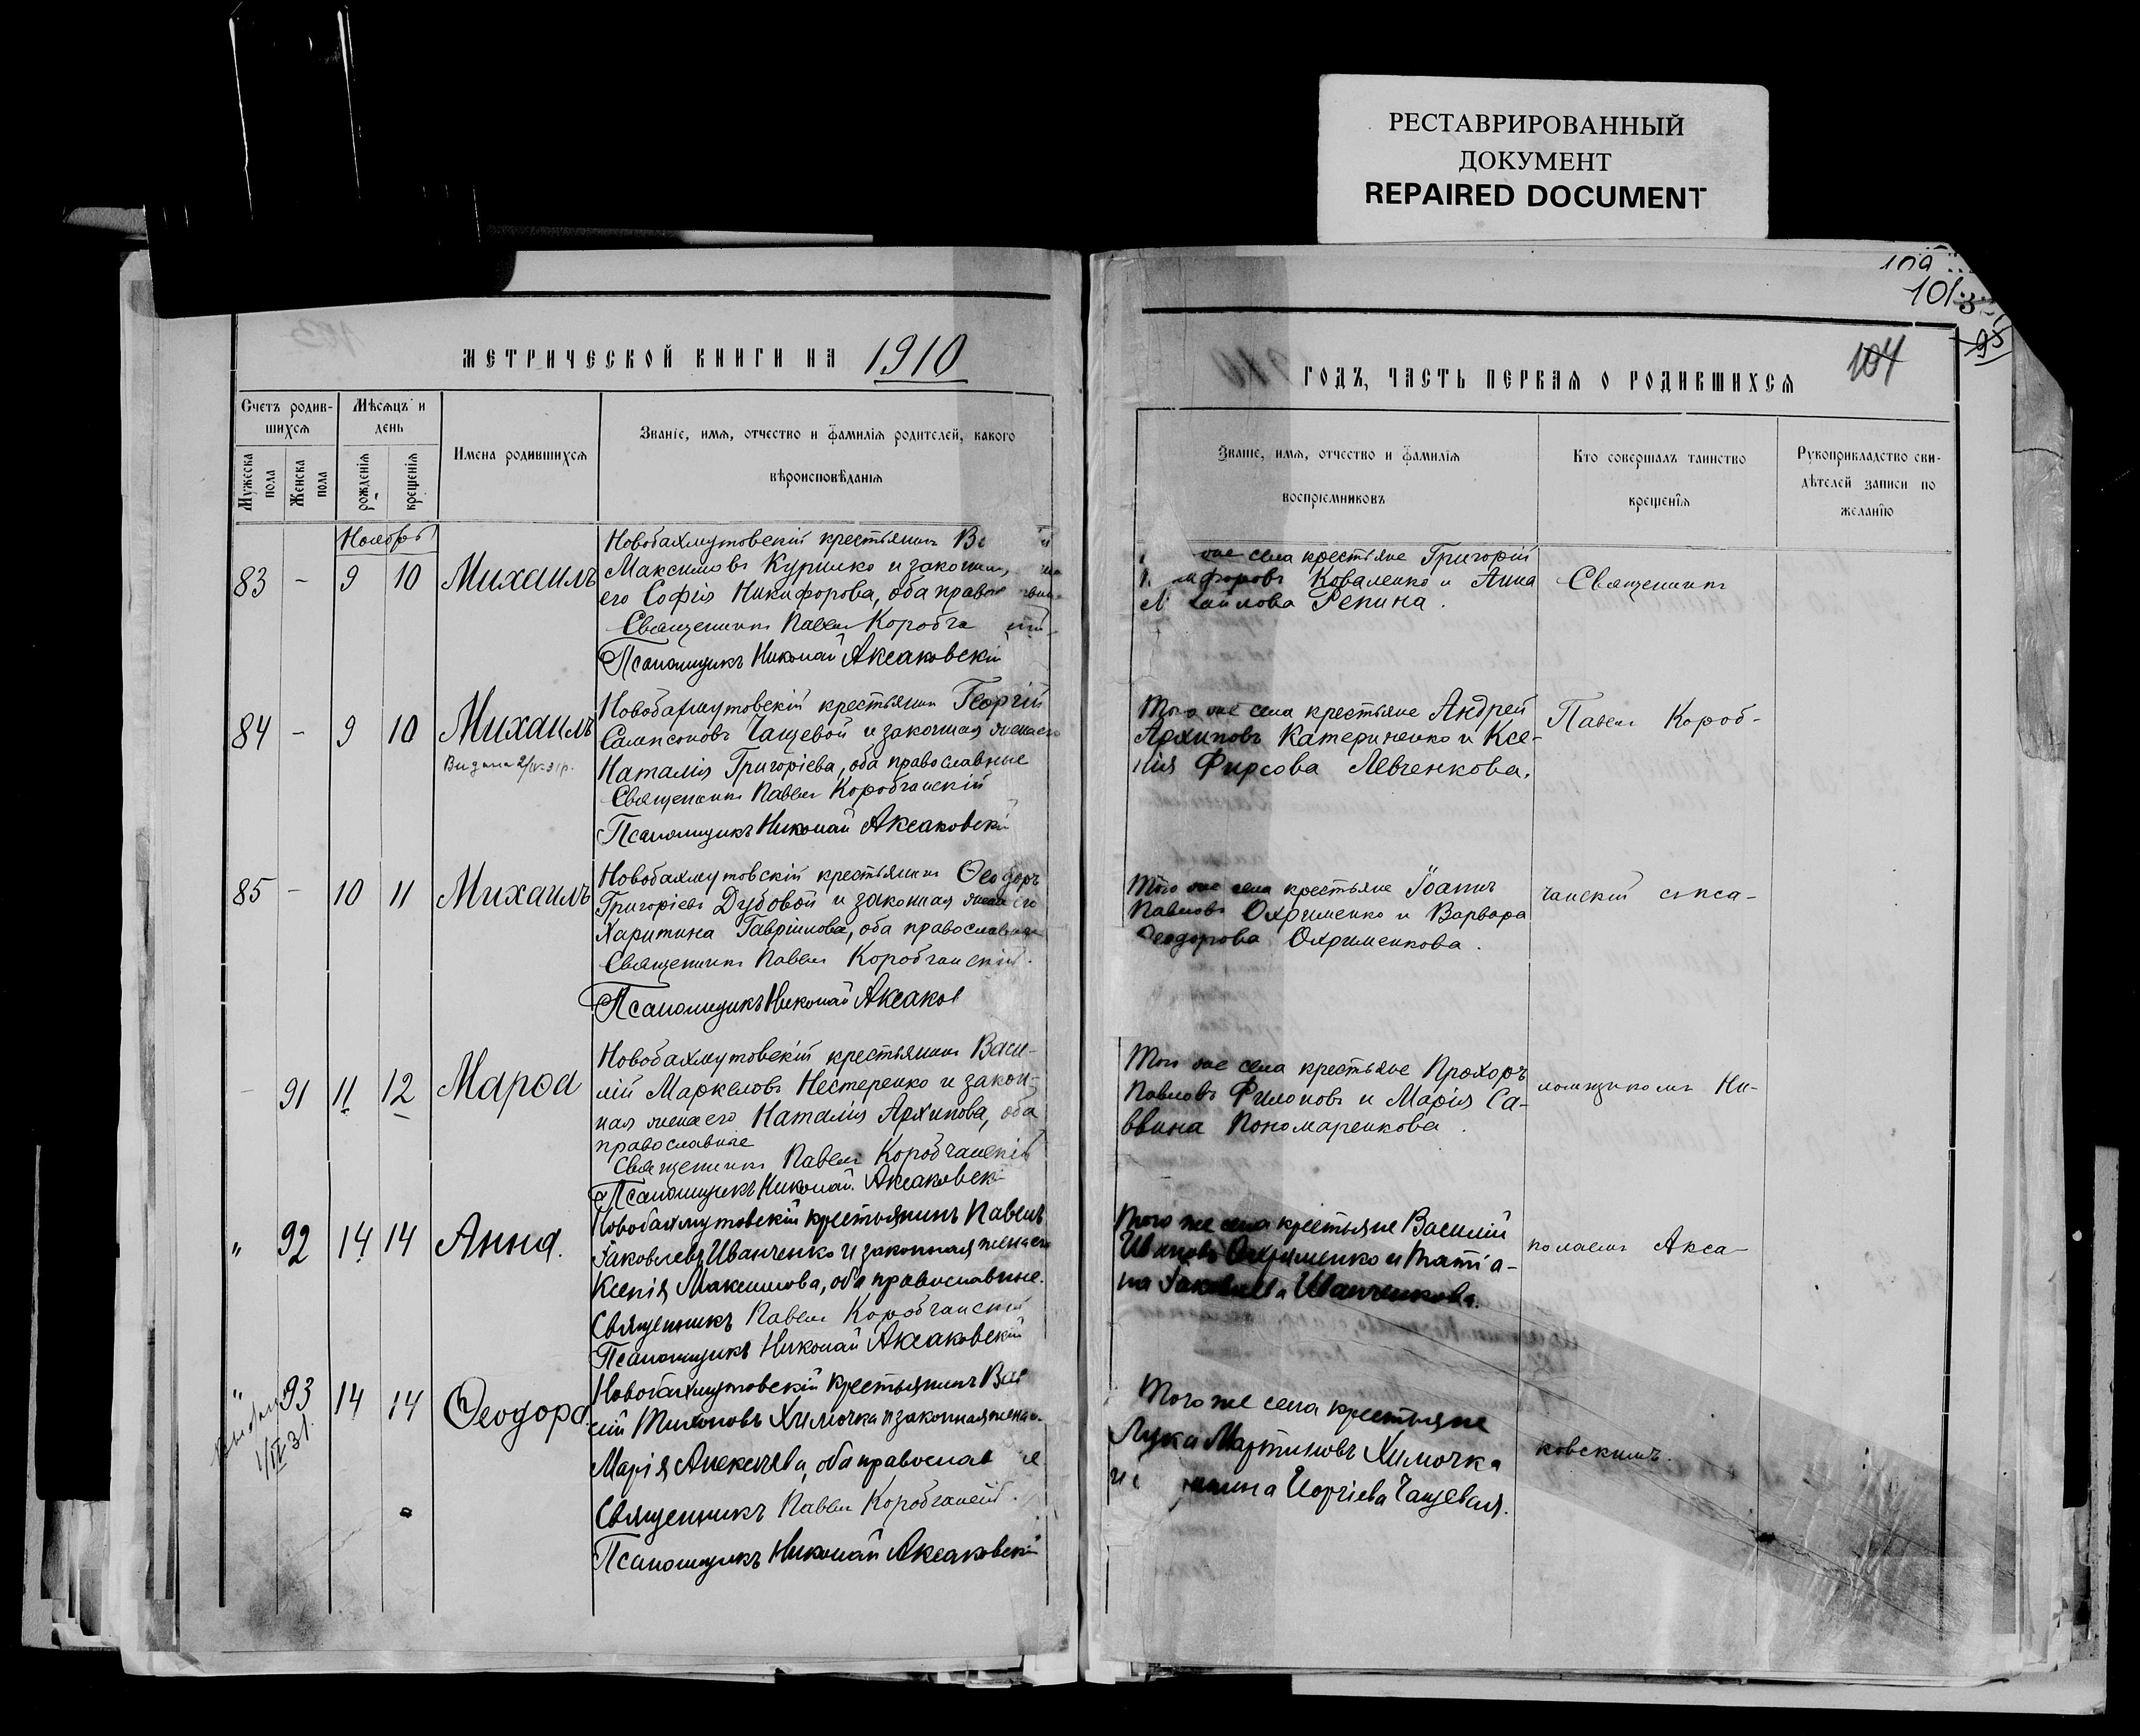 РЕСТАВРИРОВАННЫЙ
ДОКУМЕНТ
REPAIRED DOCUMENT
МЕТРИЧЕСКОЙ КНИГИ НА 1910
Счетъ родив-
шихся
Мужеска
пола
Женска
пола
Мѣсяцъ и
день
рожденія
крещенія
Имена родившихся
Званіе, имя, отчество и фамилія родителей, какого
вѣроисповѣданія
Ноябрь
83 - 9 10 Михаилъ
Новобахмутовскій крестьянинъ
Максимовъ Куринко и законная
его Софія Никифорова, оба
Священникъ Павелъ
Псаломщикъ Николай Аксаковскій
84 - 9 10 Михаилъ
Новобахмутовскій крестьянинъ Георгій
Сампсоновъ Чащевой и законная жена его
Наталія Григоріева, оба православные
Священникъ Павелъ Коробчанскій
Псаломщикъ Николай Аксаковскій
85 - 10 11 Михаилъ
Новобахмутовскій крестьянинъ Ѳеодоръ
Григоріевъ Дубовой и законная жена его
Харитина Гавріилова, оба православные
Священникъ Павелъ Коробчанскій.
Псаломщикъ Николай Аксаков
- 91 11 12 Марѳа
Новобахмутовскій крестьянинъ Васи-
лій Маркеловъ Нестеренко и закон-
ная жена его Наталія Архипова, оба
православные
Священникъ Павелъ Коробчанскій
Псаломщикъ Николай Аксаковскі
" 92 14 14 Анна.
Новобахмутовскій крестьянинъ Павелъ
Іаковлевъ Иванченко и законная жена его
Ксенія Максимова, оба православные.
Священникъ Павелъ Коробчанскій
Псаломщикъ Николай Аксаковскій
" 93 14 14 Ѳеодора.
1/IV 31.
Новобахмутовскій крестьянинъ Вас
лій Тихоновъ Химочка и законная жена
Марія Алексѣева, оба православ
Священникъ Павелъ Коробчанскій.
Псаломщикъ Николай Аксаковскій
104
ГОДЪ, ЧАСТЬ ПЕРВАЯ О РОДИВШИХСЯ
Званіе, имя, отчество и фамилія
воспріемниковъ
Кто совершалъ таинство
крещенія
Рукоприкладство сви-
дѣтелей записи по
желанію
же села крестьяне Григорій
Коваленко и Анна
Репина.
Того же села крестьяне Андрей
Архиповъ Катериненко и Ксе-
нія Фирсова Левченкова.
Того же села крестьяне Іоаннъ
Павловъ Охрименко и Варвара
Ѳеодорова Охрименкова.
Того же села крестьяне Прохоръ
Павловъ Филоновъ и Марія Са-
ввина Пономаренкова.
Того же села крестьяне Василій
Ивановъ Охрименко и Татіа-
на Іаковлева Иванченкова.
Того же села крестьяне
Лука Мартиновъ Химочка
Георгіева Чащевая.
Священникъ
Павелъ Короб-
чанскій съ пса-
ломщикомъ Ни-
колаемъ Акса-
ковскимъ.